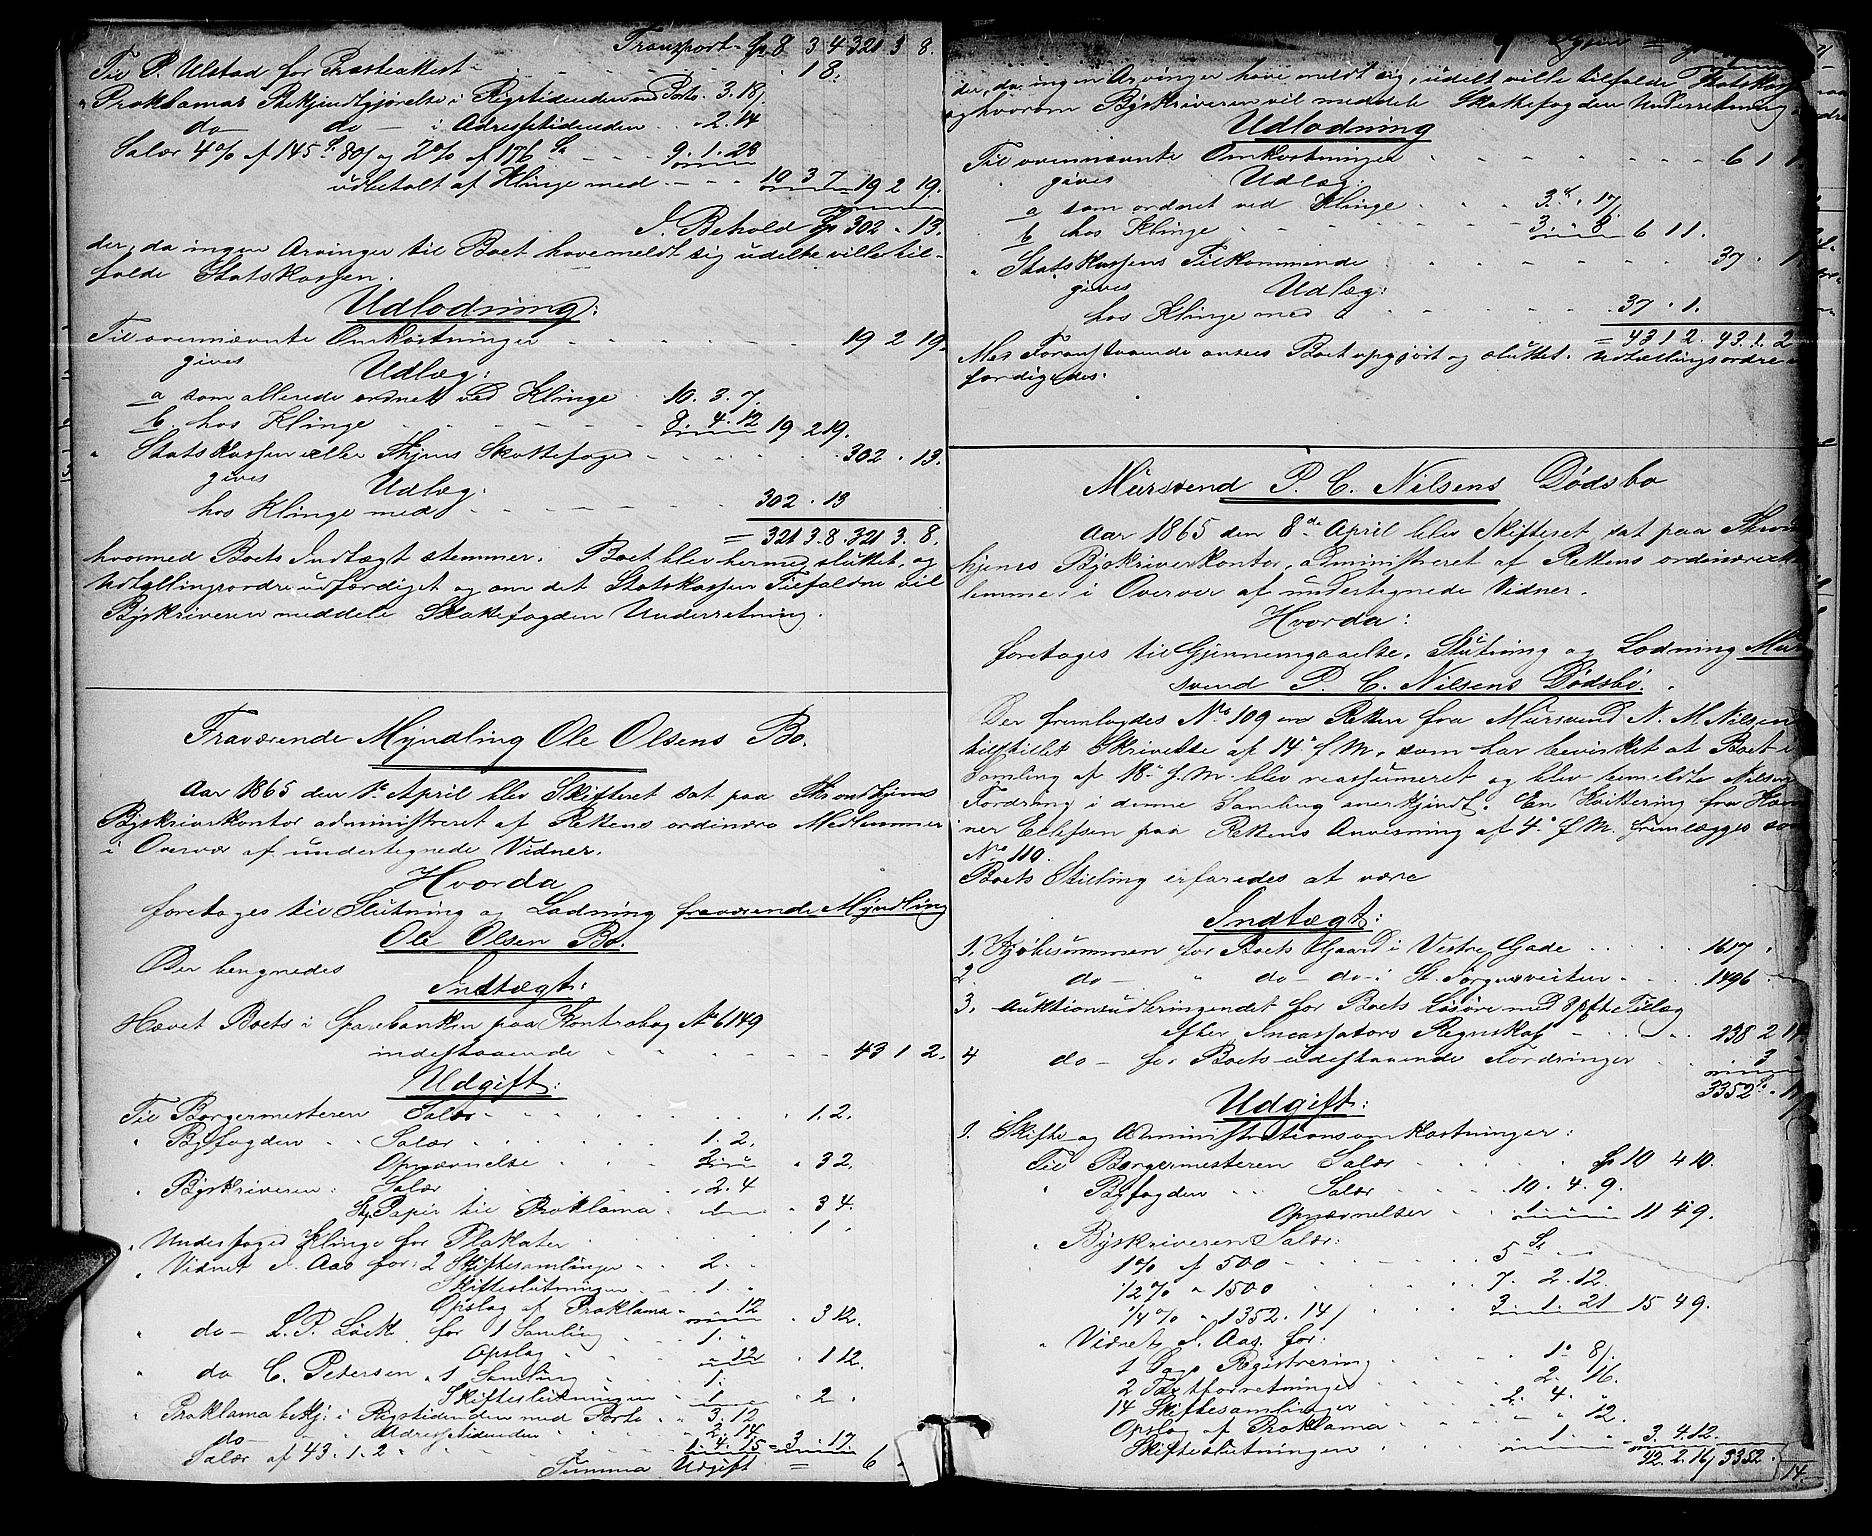 Transport Sp 8 3 4 321 3 8.
Til P. Ulstad for Præsteattest 1 8.
" Proklamas Bekjendtgjørelse i Rigstidenden med Porto 3. 19.
do do i Adressetidenden 2. 14
Salær 4% af 145 80/ og 2% af 176 9. 1. 23
udbetalt af Klinge med 10 3 7 19 2 19.
I Behold Sp 302 " 13.
der, da ingen Arvinger til Boet have meldt sig udelte ville til-
falde Statskassen.
Udlodning:
Til ovennævnte Omkostninger 19 2 19.
gives Udlæg:
a som allerede ordnet ved Klinge 10. 3. 7.
b. hos Klinge 8. 4. 12 19 2 19.
" Statskassen eller Thjems Skattefoged 302 " 13.
gives Udlæg:
hos Klinge med 302 " 13
= 321 3. 8. 321 3. 8.
hvormed Boets Indtægt stemmer. Boet blev hermed sluttet, og
Udtællingsordre udfærdiget og om det Statskassen Tilfaldne vil
Byskriveren meddele Skattefogden Underretning.
Fraværende Myndling Ole Olsens Bo.
Aar 1865 den 1ste April blev Skifteret sat paa Throndhjems
Byskriverkontor administreret af Rettens ordinære Medlemmer
i Overvær af undertegnede Vidner.
Hvorda
foretoges til Slutning og Lodning fraværende Myndling
Ole Olsen Bo.
Der beregnedes
Indtægt:
Hævet Boets i Sparebanken paa Kontrabog No 6149
indestaaende 43 1 2.
Udgift:
Til Borgermesteren Salær 1. 2.
" Byfogden Salær 1. 2.
Opnævnelse 2 " " 3 2.
" Byskriveren: Salær " 2. 4
St. Papir til Proklama 1 " 3 4.
" Underfoged Klinge for Plakater 1 "
" Vidnet I. Aas for: 2 Skiftesamlinger 2. "
Skifteslutningen 1. "
Opslag af Proklama " 12 " 3 12.
" do L. P. Løck for 1 Samling 1. "
Opslag " 12 " 1 12.
" do C. Petersen " 1 Samling 1.
Skifteslutningen 1 " 2 "
" Proklama bekj: i Rigstidenden med Porto 3. 12
do Adressetidenden 2. 14
Salær af 43. 1. 2 1. 4. 15 = 3. 17.
Summa Udgift = 6
der, da ingen Arvinger have meldt sig, udelt ville tilfalde Statskassen
og hvorom Byskriveren vil meddele Skattefogden Underretning
Udlodning
Til ovennævnte Omkostninger 6 1 1
gives Udlæg:
a som ordnet ved Klinge 3. " 17/
b hos Klinge 3 " 8 6 1 1.
" Statskassens Tilkommende 37 " 1
gives Udlæg:
hos Klinge med 37 " 1.
= 43 1 2. 43. 1. 2
Med Foranstaaende ansees Boet opgjørt og sluttet. Udtællingsordre
færdigedes.
Mursvend P. C. Nilsens Dødsbo
Aar 1865 den 8de April blev Skifteret sat paa Thrond
hjems Byskriverkontor, administreret af Rettens ordinære
lemmer i Overvær af undertegnede Vidner.
Hvorda:
foretoges til Gjennemgaaelse, Slutning og Lodning Mur
svend P. C. Nilsens Dødsbo.
Der fremlagdes No 109 en Retten fra Mursvend N. M. Nilsen
tilstillet Skrivelse af 14de f.M. som har bevirket at Boet i
Samling af 18de f.M. blev reassumeret og blev bemeldte Nilsens
Fordring i denne Samling anerkjendt. En Kvittering fra
Ellefsen paa Rettens Anvisning af 4de f.M. fremlægges som
No 110.
Boets Stilling erfaredes at være
Indtægt:
1. Kjøbesummen for Boets Gaard i Vestre Gade 1617 "
2 do " do do i St. Jørgensveiten 1496 "
3. Auktionsudbringendet for Boets Løsøre med 8 pCt Tillæg
efter Incassators Regnskab 238 2 14.
4 do for Boets udestaaende Fordringer 3 "
3352 " 14
Udgift:
1. Skifte og Administrationsomkostninger:
Til Borgermesteren Salær Sp 10 4 10.
" Byfogden Salær 10. 4. 9.
Opnævnelser 1 " " 11 4 9.
" Byskriveren Salær:
1% af 500 5 " "
1/2% " 1500 7. 2. 12.
1/4% " 1352. 14/ 3. 1. 21 15 4 9.
" Vidnet I. Aas for:
1 Dags Registrering 1. 8/.
2 Takstforretninger 2. 16.
14 Skiftesamlinger 2. 4. "
Opslag af Proklama " " 12.
Skifteslutningen 1. " 3. 4. 12.
42. 2. 16/ 3352. 14.